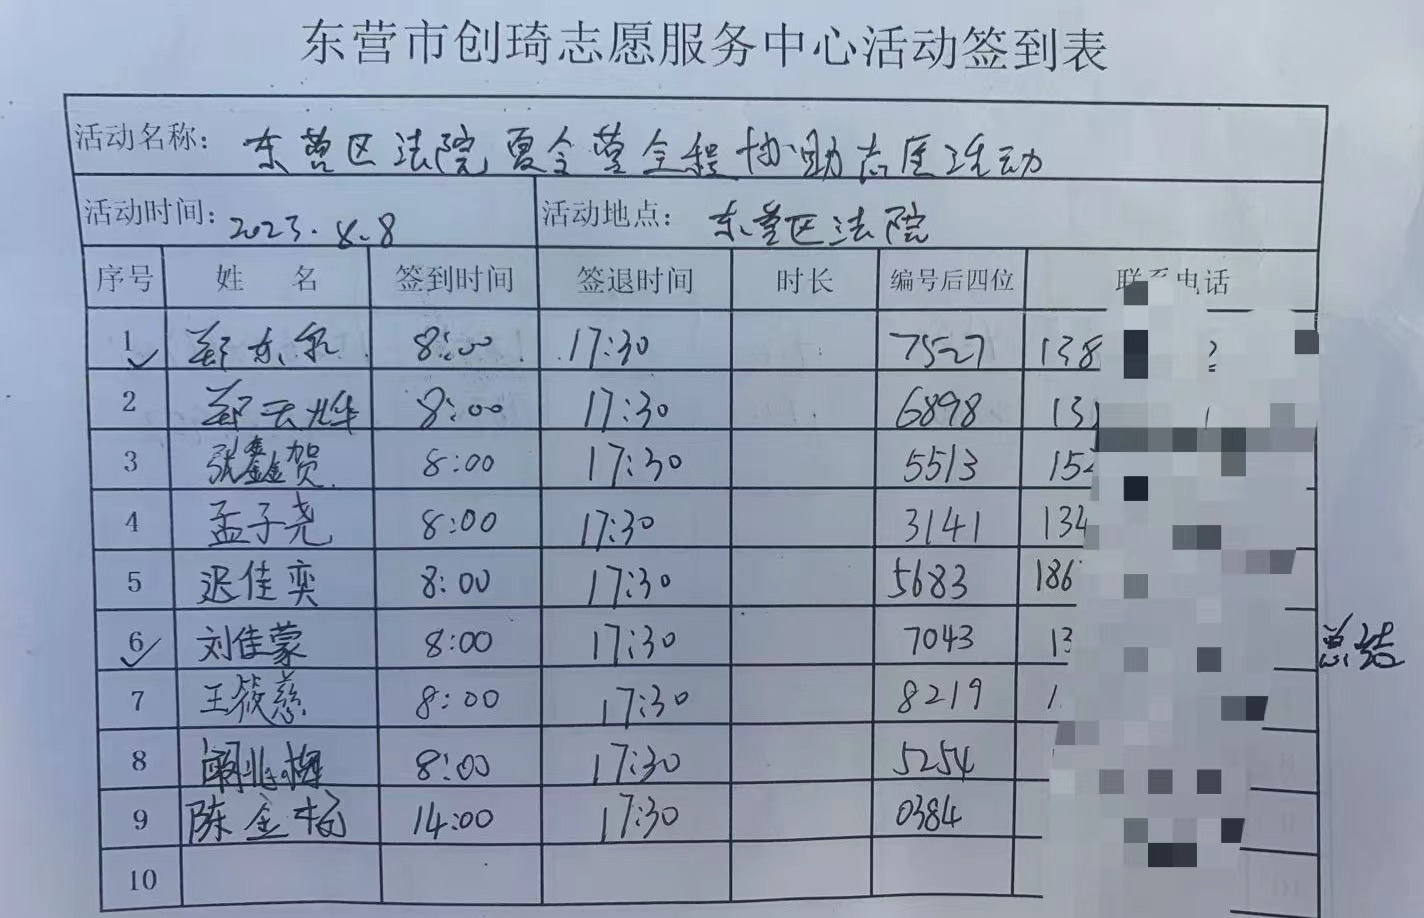 东营市创琦志愿服务中心活动签到表
活动名称: 东营区法院夏令营全程协助志愿活动
活动时间: 2023.8.8 活动地点: 东营区法院
序号 姓 名 签到时间 签退时间 时长 编号后四位 联系电话
1 郑东泉 8:00 17:30 7527 138
2 郑天烨 8:00 17:30 6898 13
3 张鑫贺 8:00 17:30 5513 152
4 孟子尧 8:00 17:30 3141 134
5 迟佳奕 8:00 17:30 5683 186
6 刘佳蒙 8:00 17:30 7043 13
总结
7 王筱慈 8:00 17:30 8219 1
8 8:00 17:30 5254
9 陈金梅 14:00 17:30 0384
10